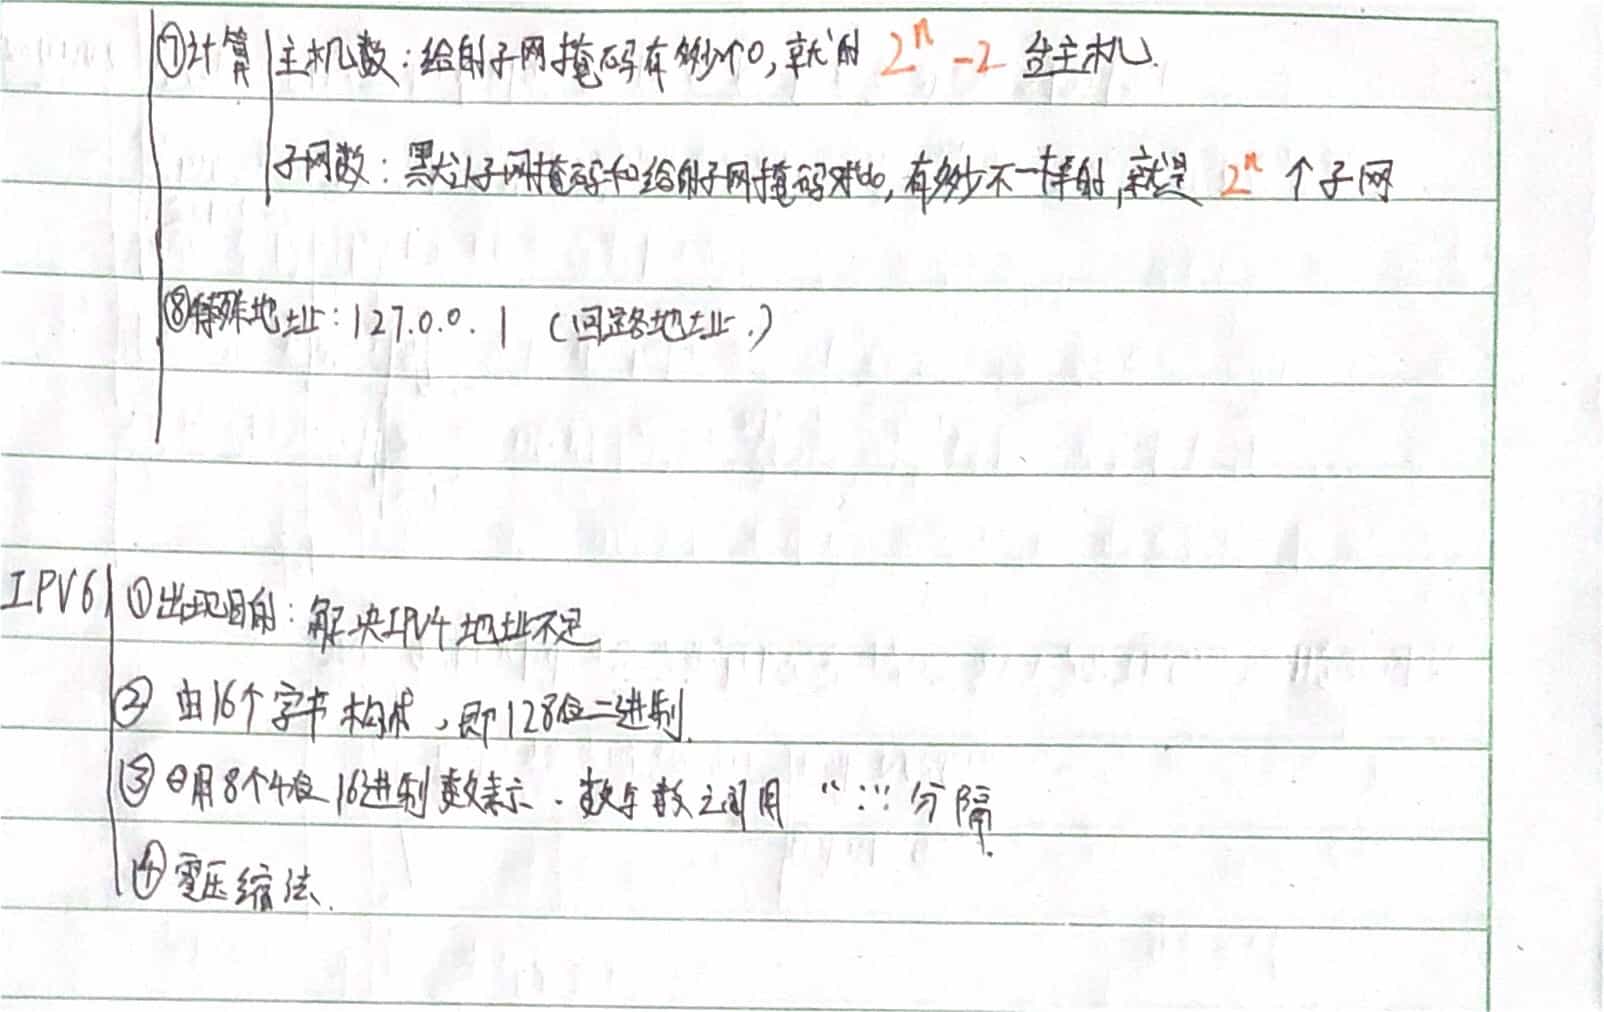 ⑦计算 主机数：给的子网掩码有多少个0，就的 2ⁿ-2 台主机.
子网数：默认子网掩码和给的子网掩码对比，有多少不一样的，就是 2ⁿ 个子网
⑧特殊地址：127.0.0.1 （回路地址.）
IPV6 ①出现目的：解决IPV4地址不足
② 由16个字节构成，即128位二进制.
③ 用8个4位16进制数表示.数与数之间用 “:” 分隔.
④零压缩法.